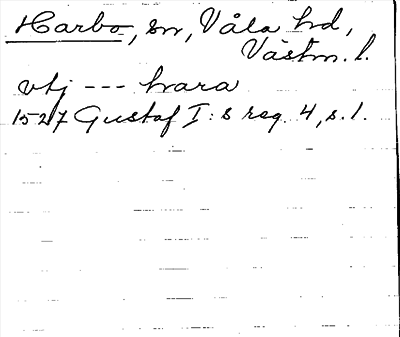 Harbo, sn, Våla hd,
Västm. l.
vtj --- hara
1527 Gustaf I:s reg. 4, s. 1.